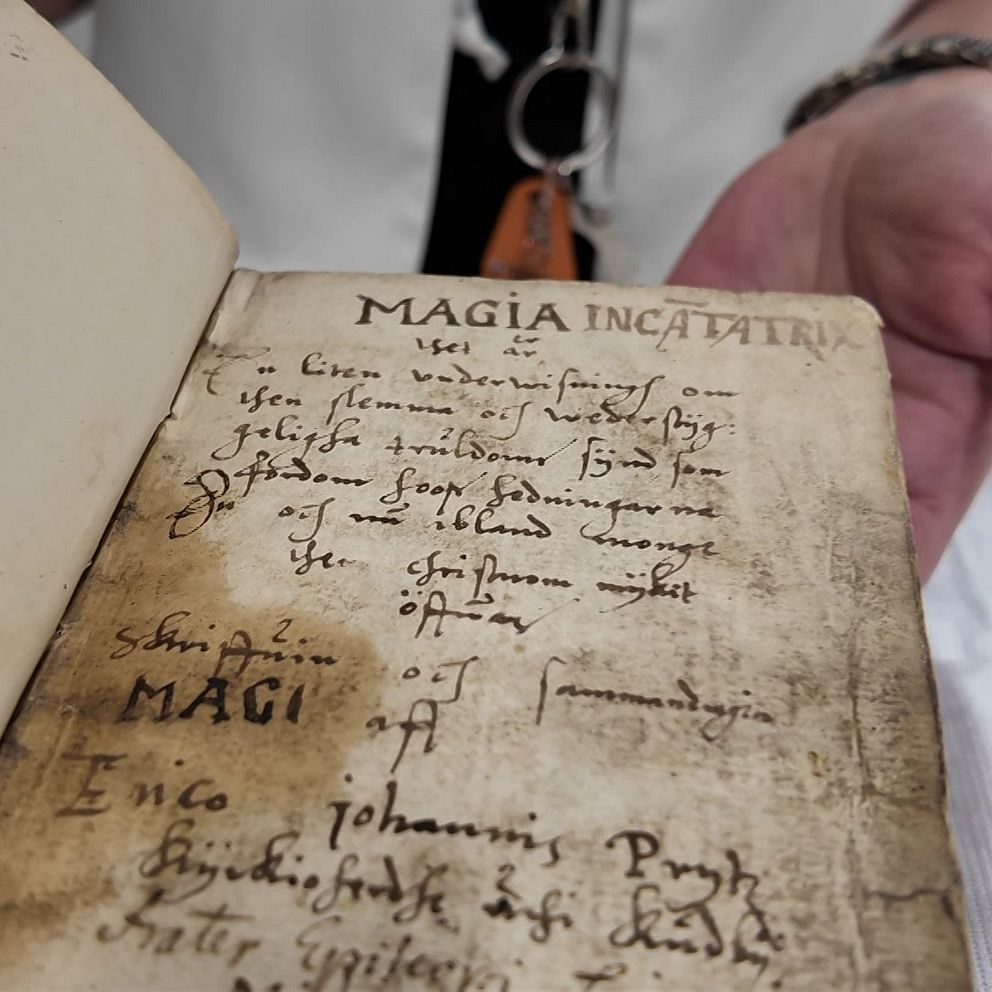 MAGIA INCĀTATRIX
thet är
En liten underwisningh om
then slemma och wederstÿg:
geligha truldoms sÿnd som
fordom hoos hedningarna
och nu ibland monge
the christnom mÿkit
öffuas
Skriffuin och sammandragin
MAGI aff
Erico Johannis Prytz
kÿrkioherdhe
Frater